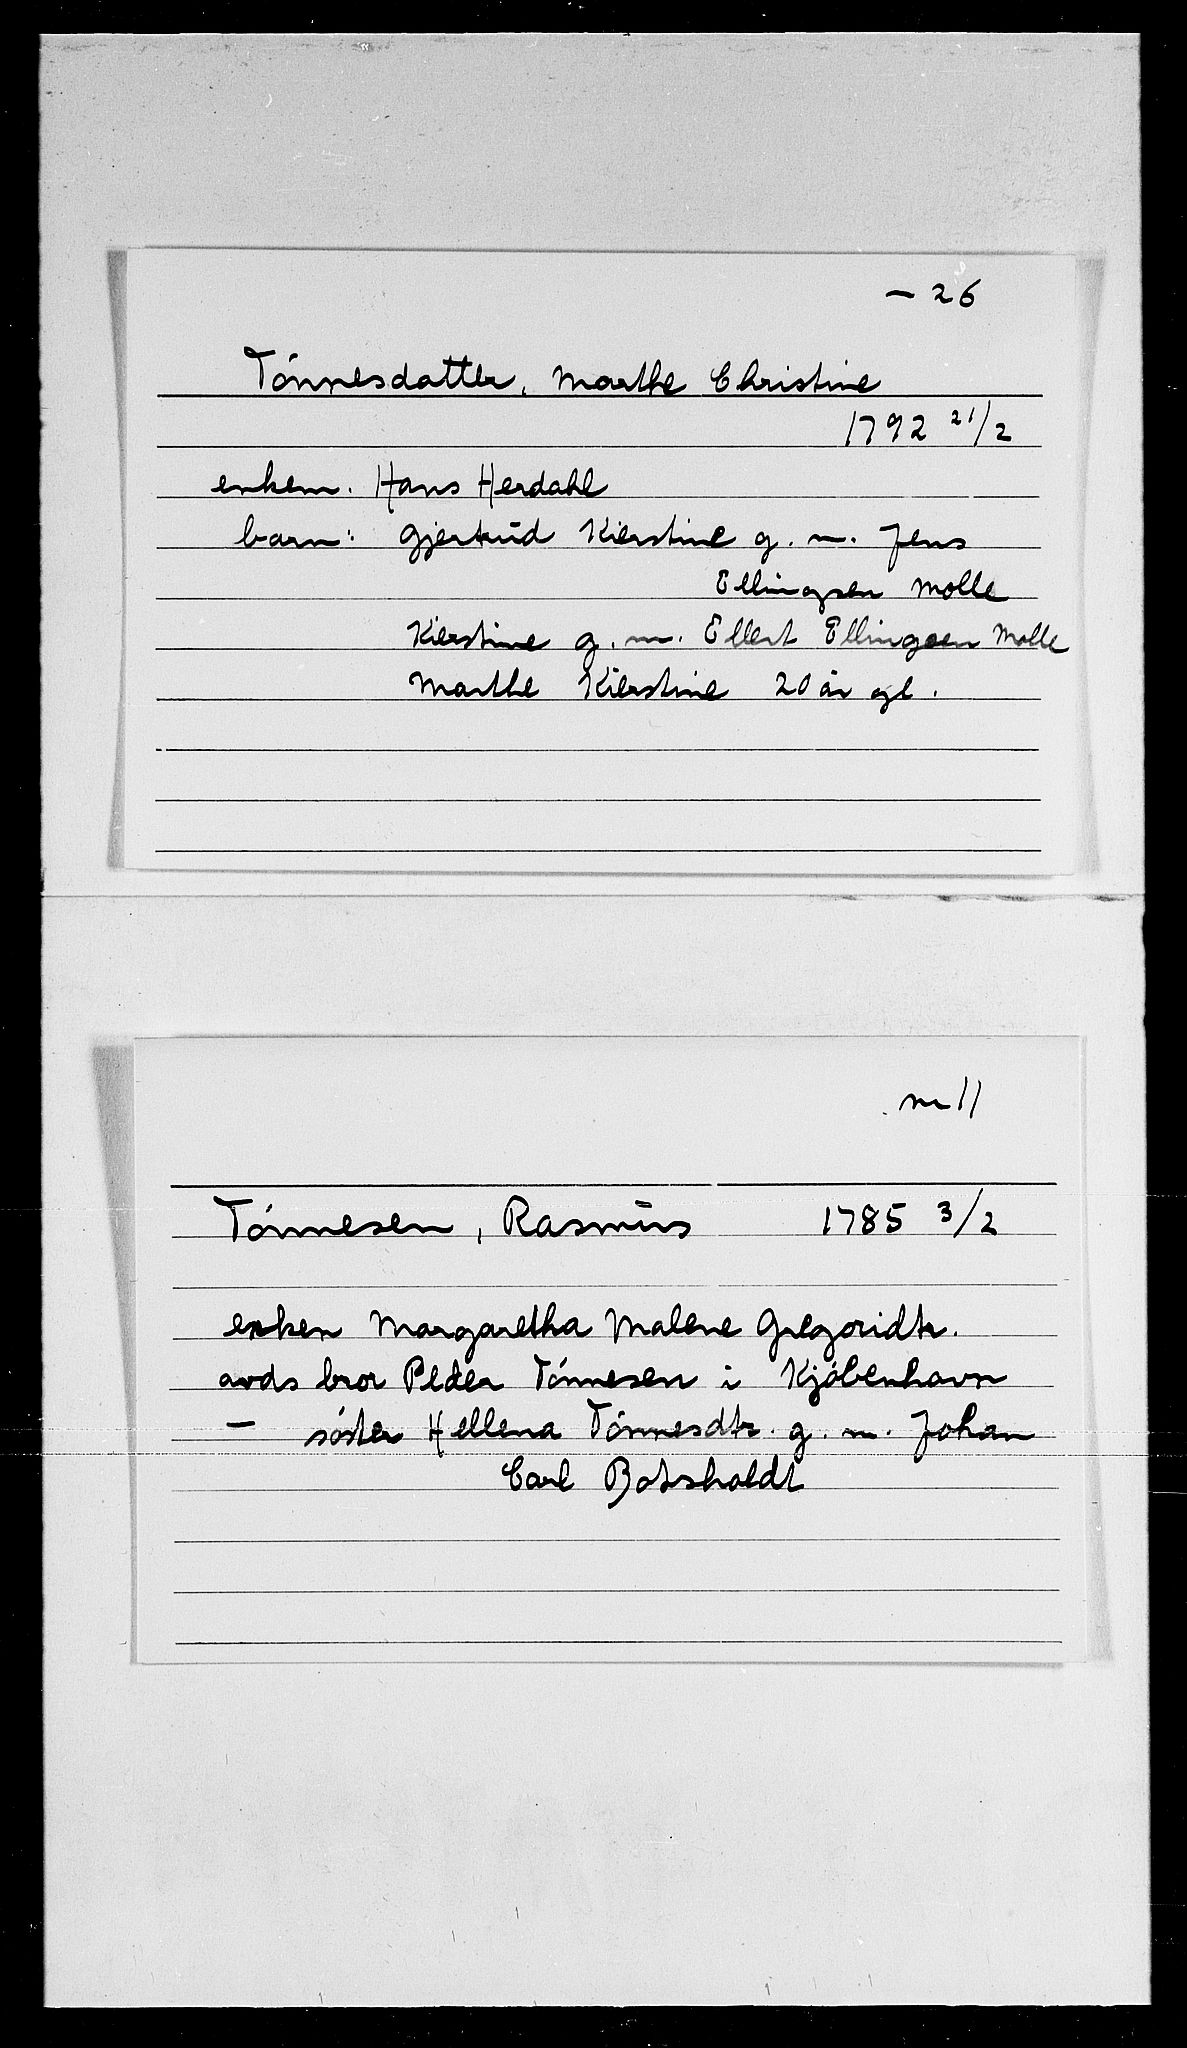 – 26
Tónnesdatter, Marthe Christine
1792 21/2
enkem. Hans Herdahl
barn: Gjertrud Kierstine g. m. Jens
Ellingsen Molle
Kierstine g. m. Ellert Ellingsen Molle
Marthe Kierstine 20 år gl.
nr 11
Tónnesen, Rasmus 1785 3/2
enken Margaretha Malene Gregoridtr.
avds bror Peder Tónnesen i Kjóbenhavn
– sóster Hellena Tónnesdtr. g. m. Johan
Carl Botsholdt